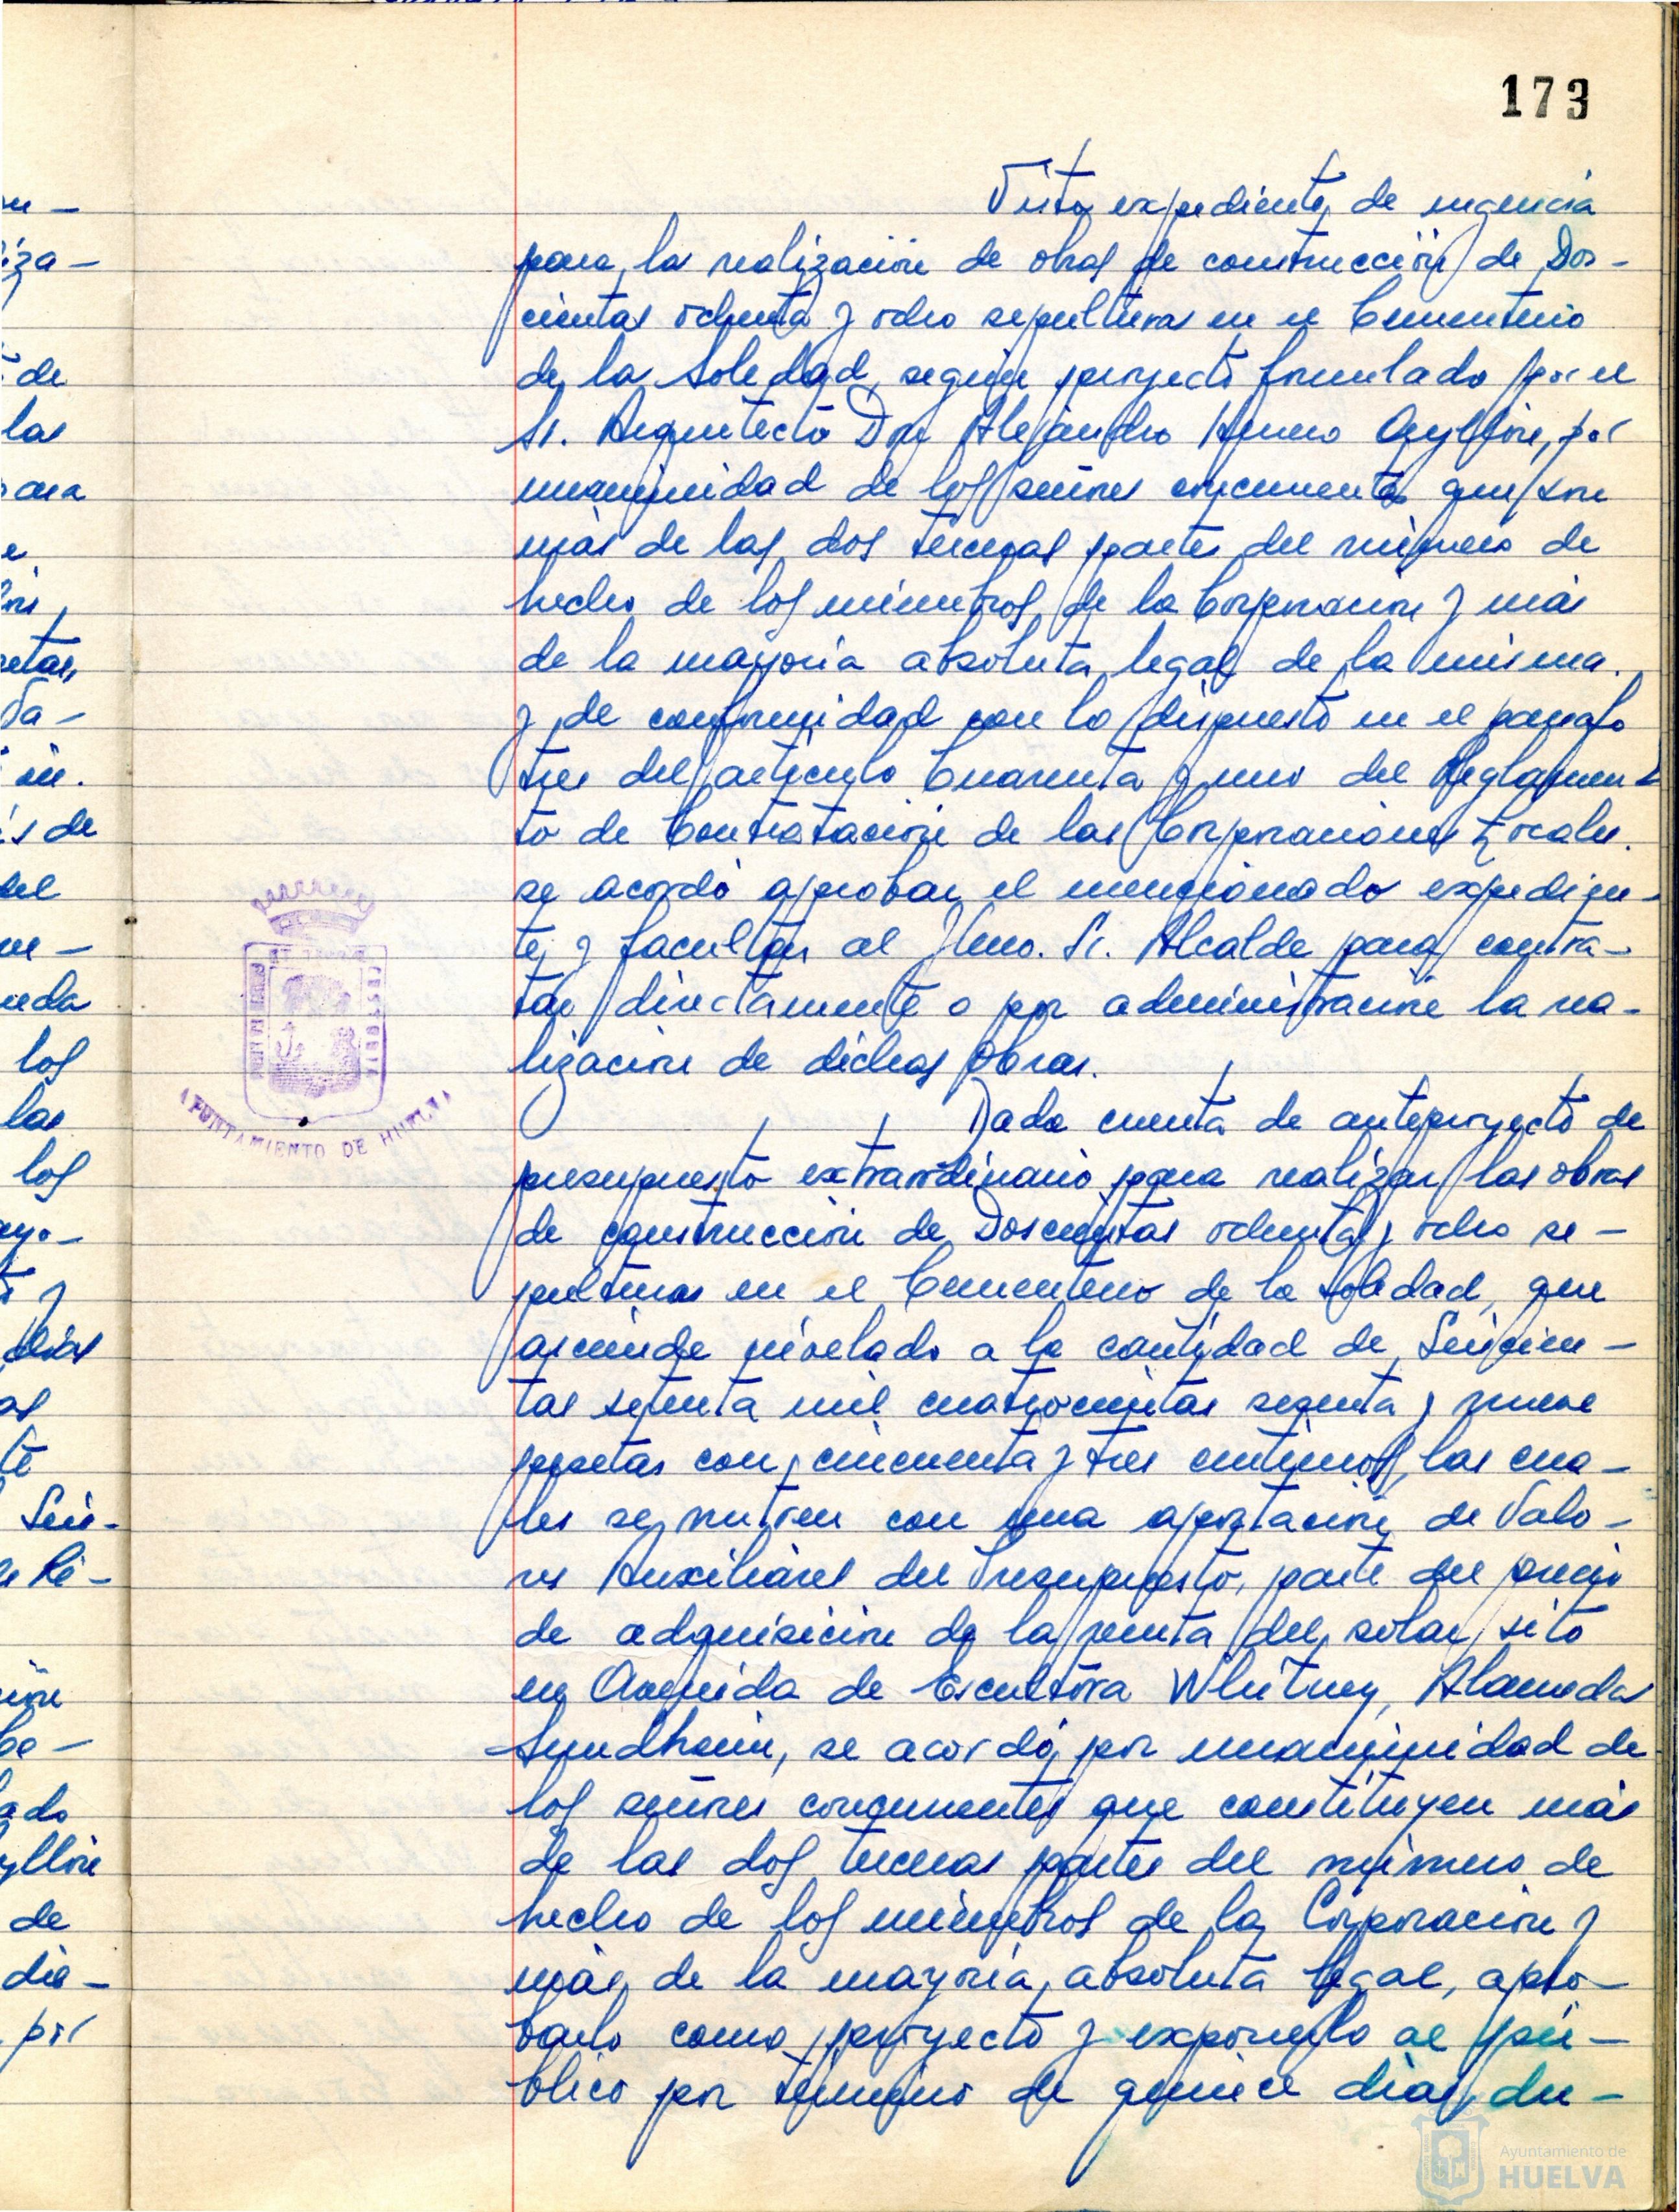 173
Visto expediente de urgencia
para la realización de obras de construcción de Dos-
cientas ochenta y ocho sepulturas en el Cementerio
de la Soledad, según proyecto formulado por el
Sr. Arquitecto Don Alejandro Herrero Ayllón, por
unanimidad de los señores concurrentes que son
más de las dos terceras partes del número de
hecho de los miembros de la Corporación y más
de la mayoría absoluta legal de la misma.
y de conformidad con lo dispuesto en el párrafo
tres del artículo Cuarenta y uno del Reglamen-
to de Contratación de las Corporaciones Locales.
se acordó aprobar el mencionado expedien-
te, y facultar al Ilmo. Sr. Alcalde para contra-
tar directamente o por administración la rea-
lización de dichas obras.
AYUNTAMIENTO DE HUELVA
Dada cuenta de anteproyecto de
presupuesto extraordinario para realizar las obras
de construcción de Doscientas ochenta y ocho se-
pulturas en el Cementerio de la Soledad, que
asciende nivelado a la cantidad de Seiscien-
tas setenta mil cuatrocientas sesenta y nueve
pesetas con cincuenta y tres céntimos, las cua-
les se nutren con una aportación de Valo-
res Auxiliares del Presupuesto, parte del precio
de adquisición de la venta del solar sito
en Avenida de Escultora Whitney, Alameda
Sundheim, se acordó por unanimidad de
los señores concurrentes que constituyen más
de las dos terceras partes del número de
hecho de los miembros de la Corporación y
más de la mayoría absoluta legal, apro-
barlo como proyecto y exponerlo al pú-
blico por término de quince días, du-
Ayuntamiento de
HUELVA